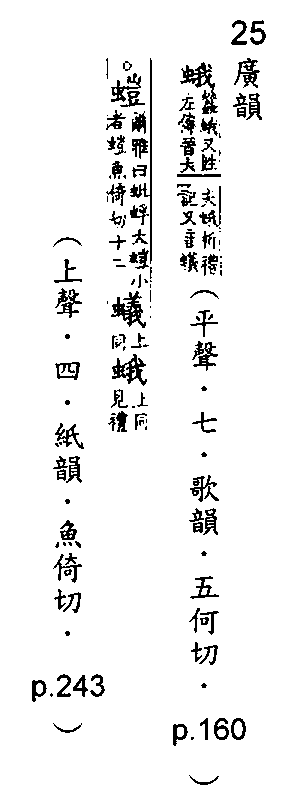 25
廣韻
蛾 蠶蛾又姓左傳晉大夫蛾析禮記又音蟻（平聲．七．歌韻．五何切．p.160）
○螘 爾雅曰蚍蜉大螘小者螘魚倚切十二 蟻 上同 蛾 上同見禮
（上聲．四．紙韻．魚倚切．p.243）